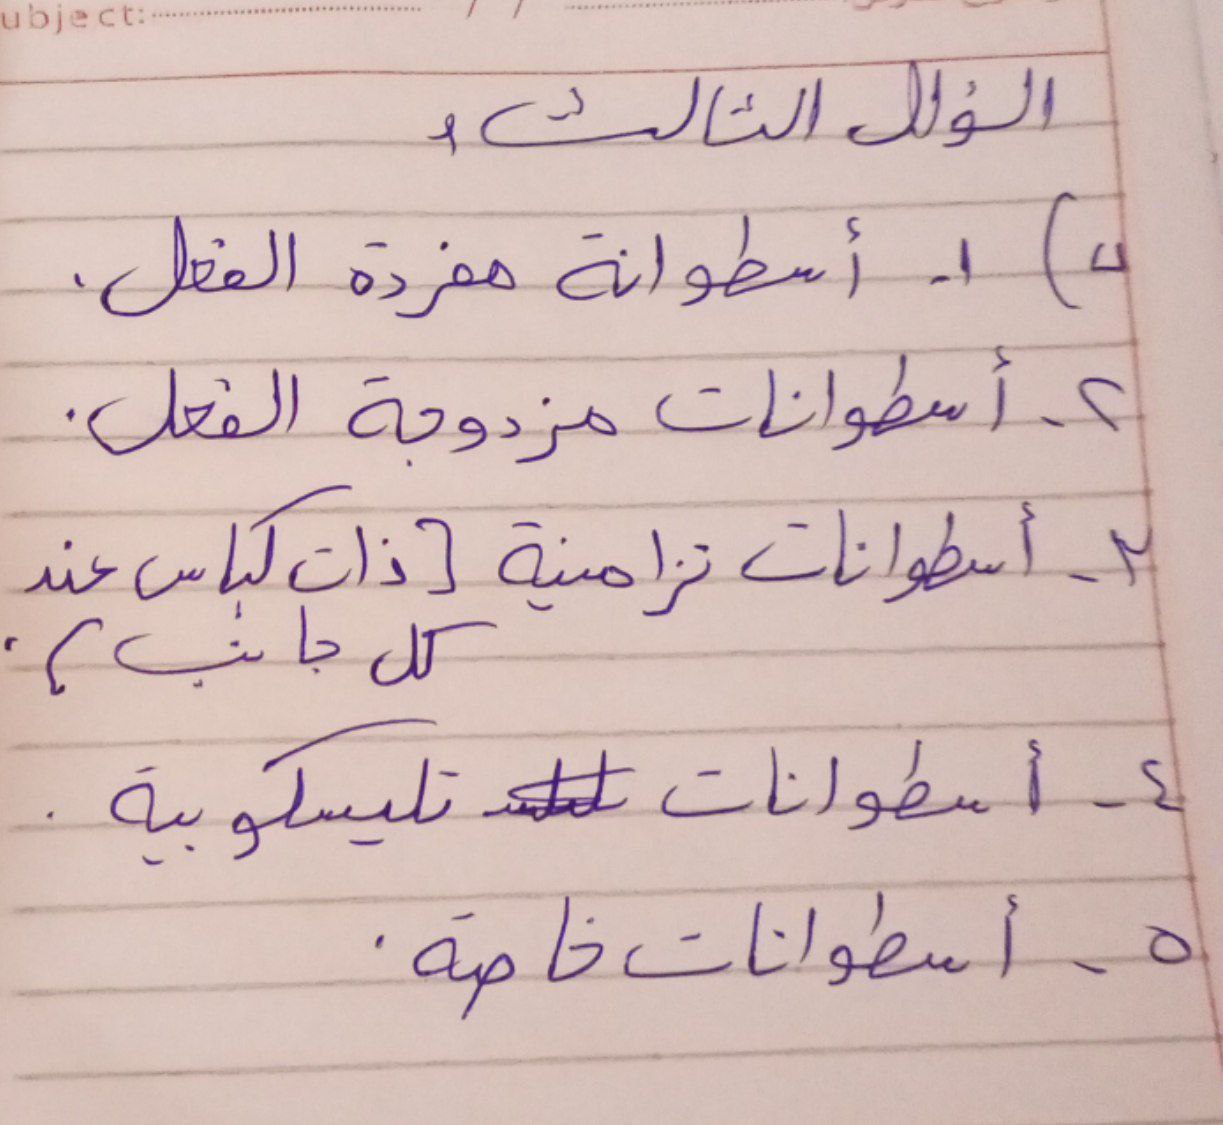 ubject:
السؤال الثالث:
ب) ١- أسطوانة مفردة الفعل.
٢- أسطوانات مزدوجة الفعل.
٣- أسطوانات تزامنية [ذات كباس عند
كل جانب].
٤- أسطوانات تليسكوبية.
٥- أسطوانات خاصة.